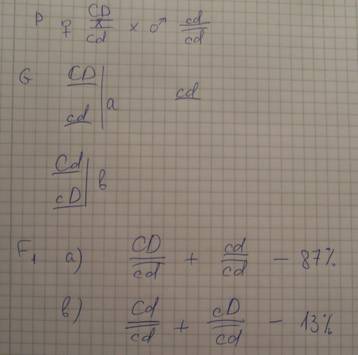 P ♀ CD/cd × ♂ cd/cd
G CD
cd а cd
Cd
cD в
F₁ а) CD/cd + cd/cd - 87%
в) Cd/cd + cD/cd - 13%